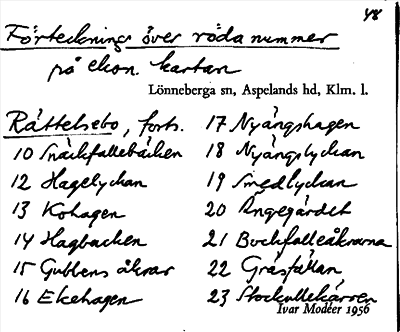 48
Förteckning över röda nummer
på ekon. kartan
Lönneberga sn, Aspelands hd, Klm. l.
Råttelsebo, forts.
10 Snäckfallebäcken
12 Hagelyckan
13 Kohagen
14 Hagbacken
15 Gubbens åkrar
16 Ekehagen
17 Nyängshagen
18 Nyängslyckan
19 Smedlyckan
20 Ängegärdet
21 Bockfalleåkrarna
22 Gräsfällan
23 Stockullekärren
Ivar Modéer 1956